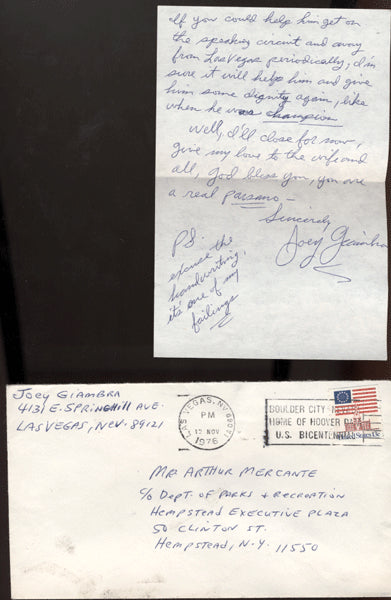 If you could help him get on
the speaking circuit and away
from Las Vegas periodically; I'm
sure it will help him and give
him some dignity again, like
when he was champion
Well, I'll close for now,
give my love to the wife and
all, God bless you, you are
a real paisano -
Sincerely
Joey Giambra
P.S.
excuse the
handwriting,
it's one of my
failings
Joey Giambra
4131 E. Springhill Ave.
Las Vegas, Nev. 89121
LAS VEGAS, NV
PM
12 NOV
1976
BOULDER CITY
HOME OF HOOVER DAM
U.S. BICENTEN
Mr. Arthur Mercante
c/o Dept. of Parks + Recreation
Hempstead Executive Plaza
50 Clinton St.
Hempstead, N.Y. 11550